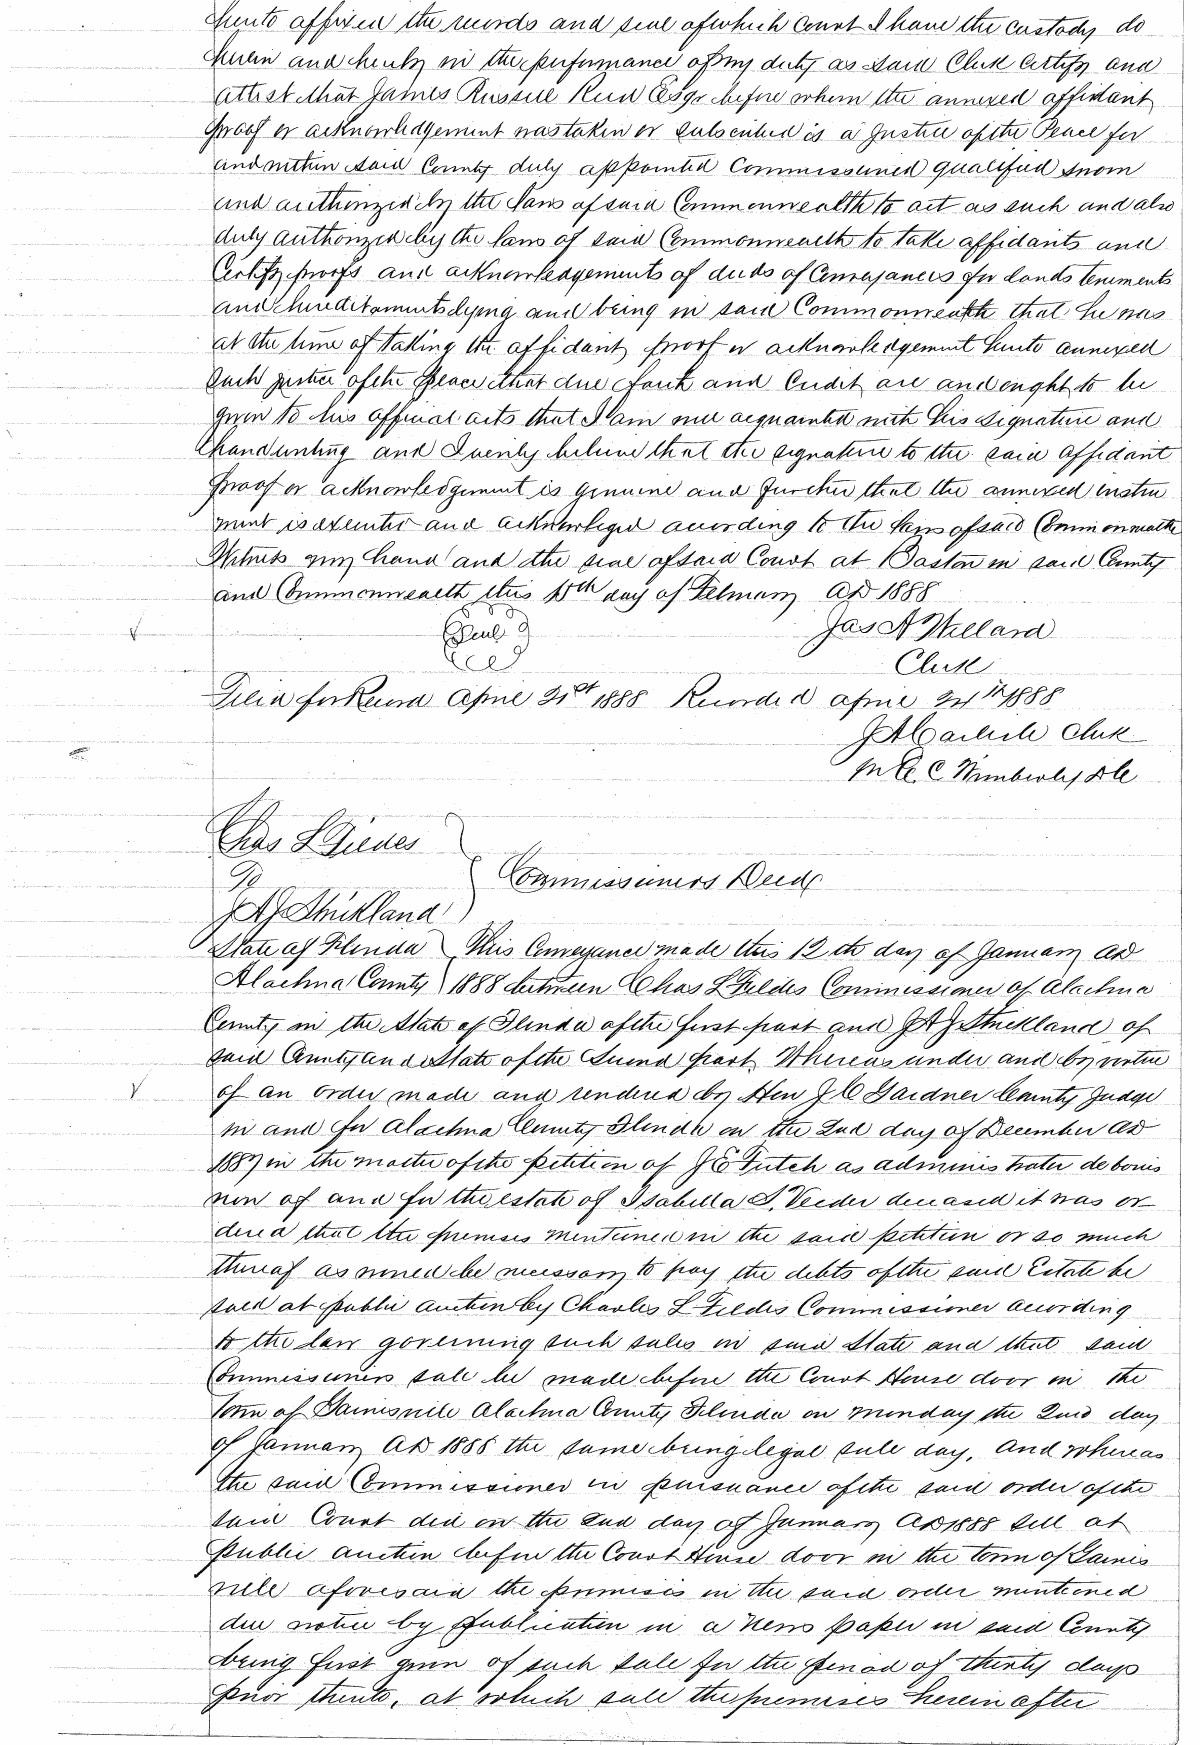 hereto affixed the records and seal of which Court I have the custody do
herein and hereby in the performance of my duty as said Clerk Certify and
attest that James Russell Reed Esqr before whom the annexed affidavit
proof or acknowledgement was taken or subscribed is a Justice of the Peace for
and within said County duly appointed Commissioned qualified sworn
and authorized by the laws of said Commonwealth to act as such and also
duly authorized by the laws of said Commonwealth to take affidavits and
Certify proofs and acknowledgements of deeds of Conveyances for lands tenements
and hereditaments lying and being in said Commonwealth that he was
at the time of taking the affidavit proof or acknowledgement hereto annexed
Such justice of the Peace that due faith and Credit are and ought to be
given to his official acts that I am well acquainted with his signature and
handwriting and I verily believe that the signature to the said affidavit
proof or acknowledgement is genuine and further that the annexed instru
ment is executed and acknowledged according to the laws of said Commonwealth
Witness my hand and the seal of said Court at Boston in said County
and Commonwealth this day of February AD 1888
Seal Jas A Willard
Clerk
Filed for Record April 21st 1888 Recorded April 24th 1888
J A Carlisle Clerk
C Wimberly DC
Chas L Fildes
To Commissioners Deed
J A J Strickland
State of Florida This Conveyance made this 12th day of January AD
Alachua County 1888 between Chas L Fildes Commissioner of Alachua
County in the State of Florida of the first part and J A J Strickland of
said County and State of the Second part Whereas under and by virtue
of an order made and rendered by Hon J C Gardner County Judge
in and for Alachua County Florida on the 2nd day of December AD
1887 in the matter of the petition of J E Futch as administrator de bonis
non of and for the estate of Isabella S. Veeder deceased it was or
dered that the premises mentioned in the said petition or so much
thereof as would be necessary to pay the debts of the said Estate be
sold at public auction by Charles L Fildes Commissioner according
to the law governing such sales in said State and that said
Commissioners sale be made before the Court House door in the
town of Gainesville Alachua County Florida on Monday the 2nd day
of January AD 1888 the same being legal sale day. And whereas
the said Commissioner in pursuance of the said order of the
said Court did on the 2nd day of January AD 1888 sell at
Public auction before the Court House door in the town of Gaines
ville aforesaid the premises in the said order mentioned
due notice by publication in a News paper in said County
being first given of such sale for the period of thirty days
prior thereto, at which sale the premises herein after